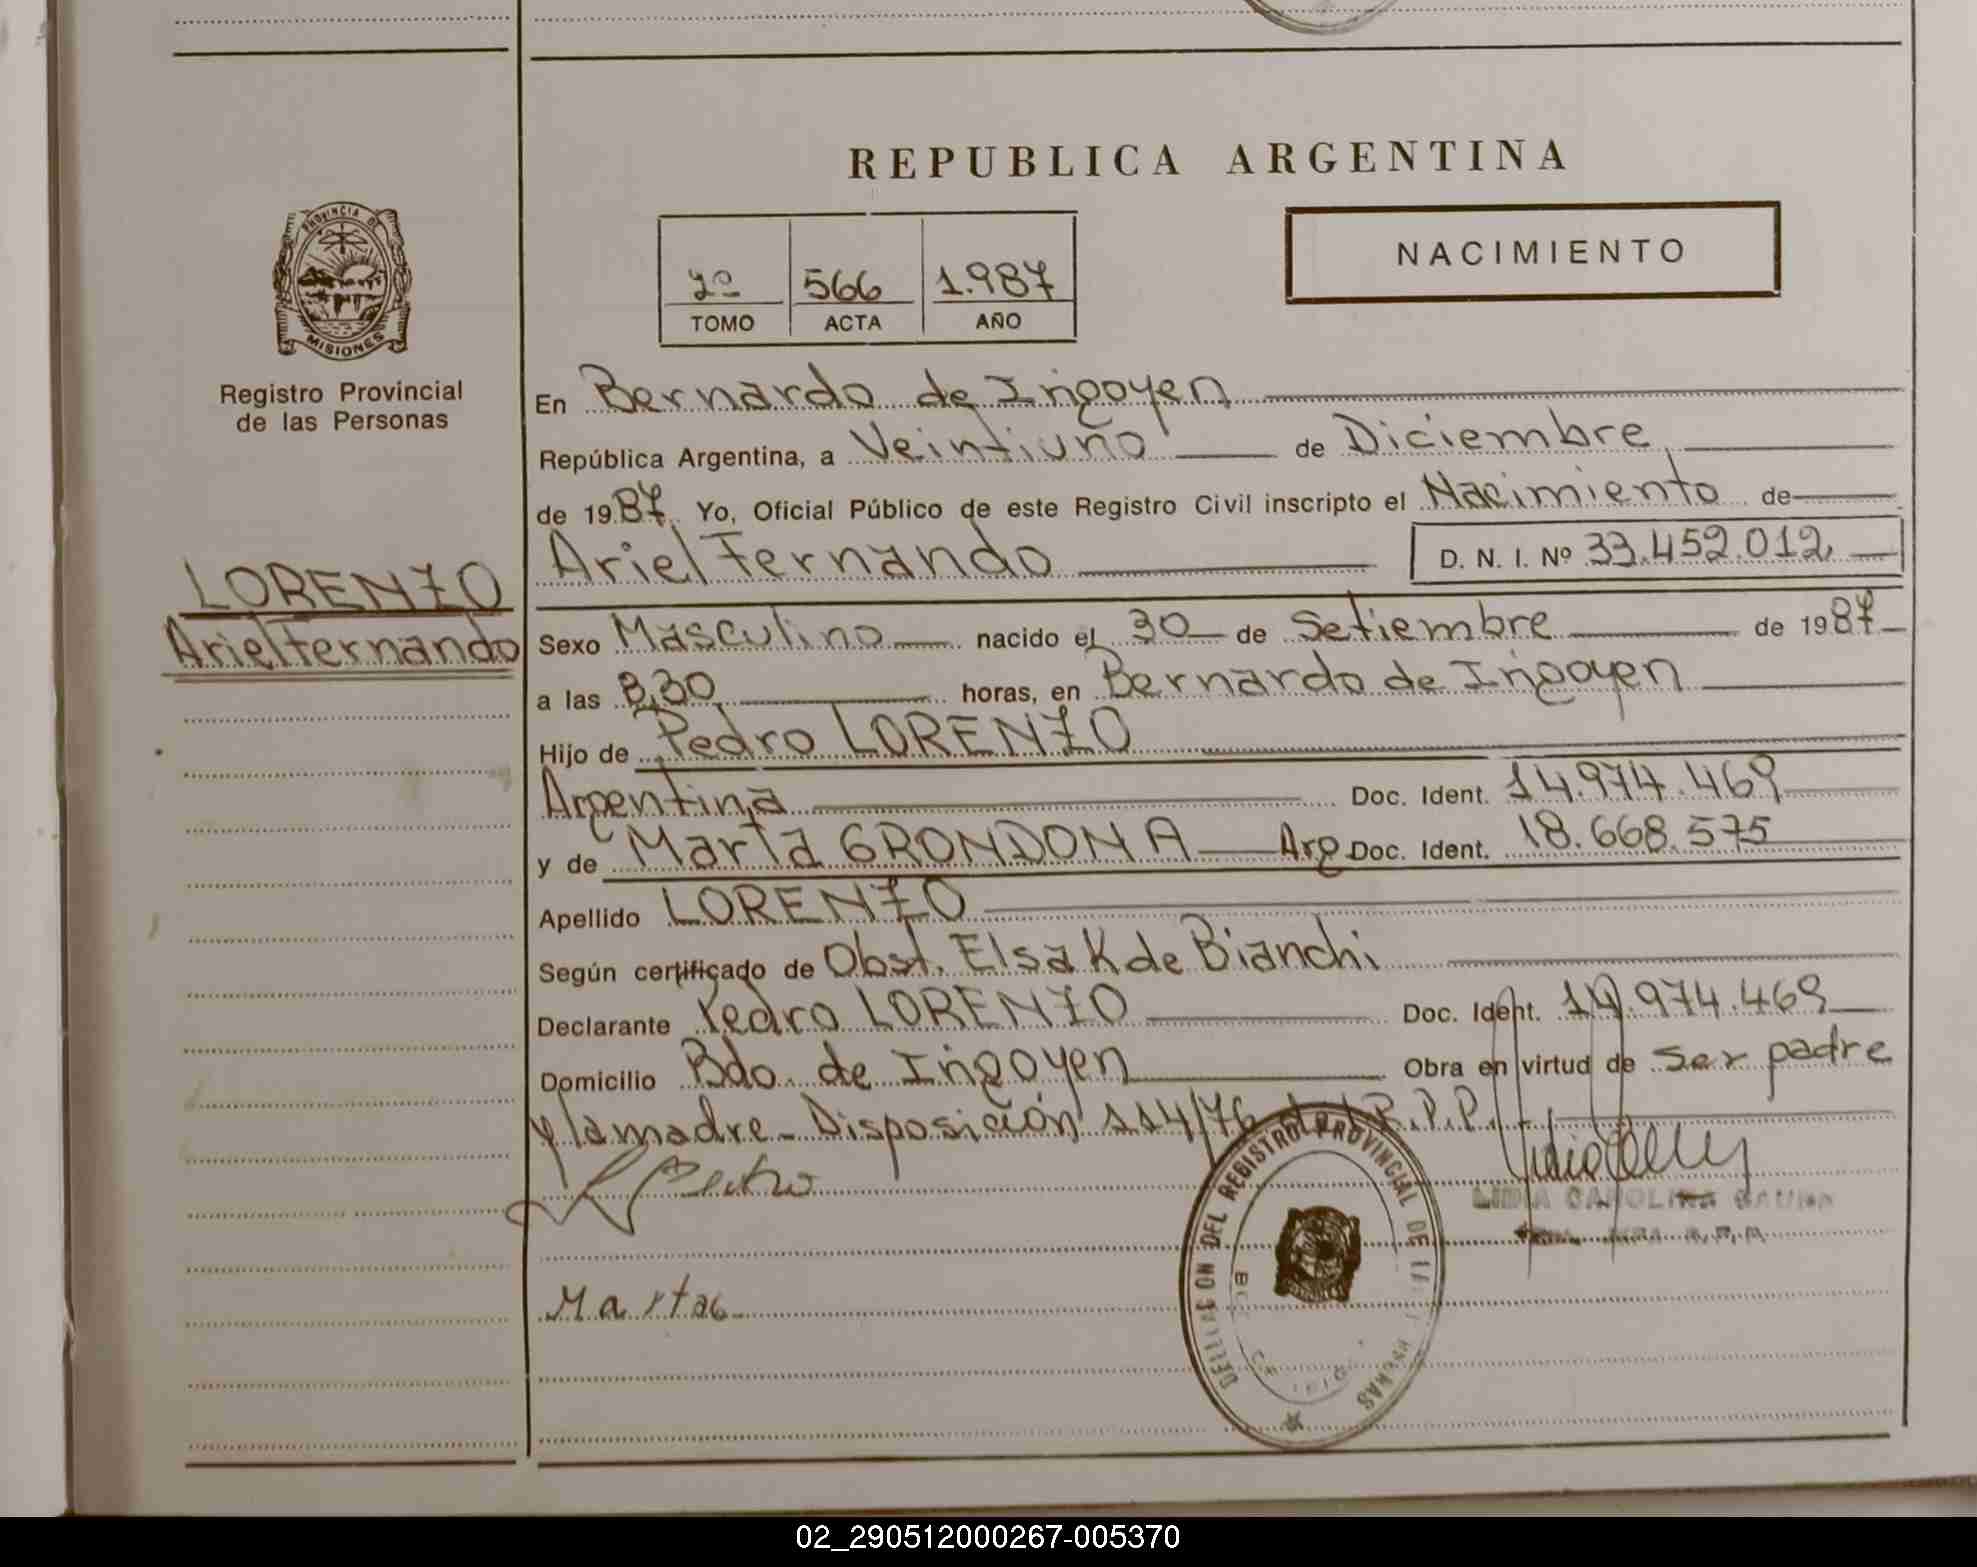 REPUBLICA ARGENTINA
PROVINCIA DE
MISIONES
Registro Provincial
de las Personas
LORENZO
Ariel Fernando
2º 566 1.987
TOMO ACTA AÑO
NACIMIENTO
En Bernardo de Irigoyen
República Argentina, a Veintiuno de Diciembre
de 1987 Yo, Oficial Público de este Registro Civil inscripto el Nacimiento de
Ariel Fernando D. N. I. Nº 33.452.012
Sexo Masculino nacido el 30 de Setiembre de 1987
a las 8,30 horas, en Bernardo de Irigoyen
Hijo de Pedro LORENZO
Argentina Doc. Ident. 14.974.469
y de Marta GRONDONA Arg Doc. Ident. 18.668.575
Apellido LORENZO
Según certificado de Obst. Elsa K de Bianchi
Declarante Pedro LORENZO Doc. Ident. 14.974.469
Domicilio Bdo. de Irigoyen Obra en virtud de ser padre
y la madre - Disposición 114/76 del R.P.P.
DELEGACION DEL REGISTRO PROVINCIAL DE LAS PERSONAS
LIDIA CAROLINA
Marta G
02_290512000267-005370